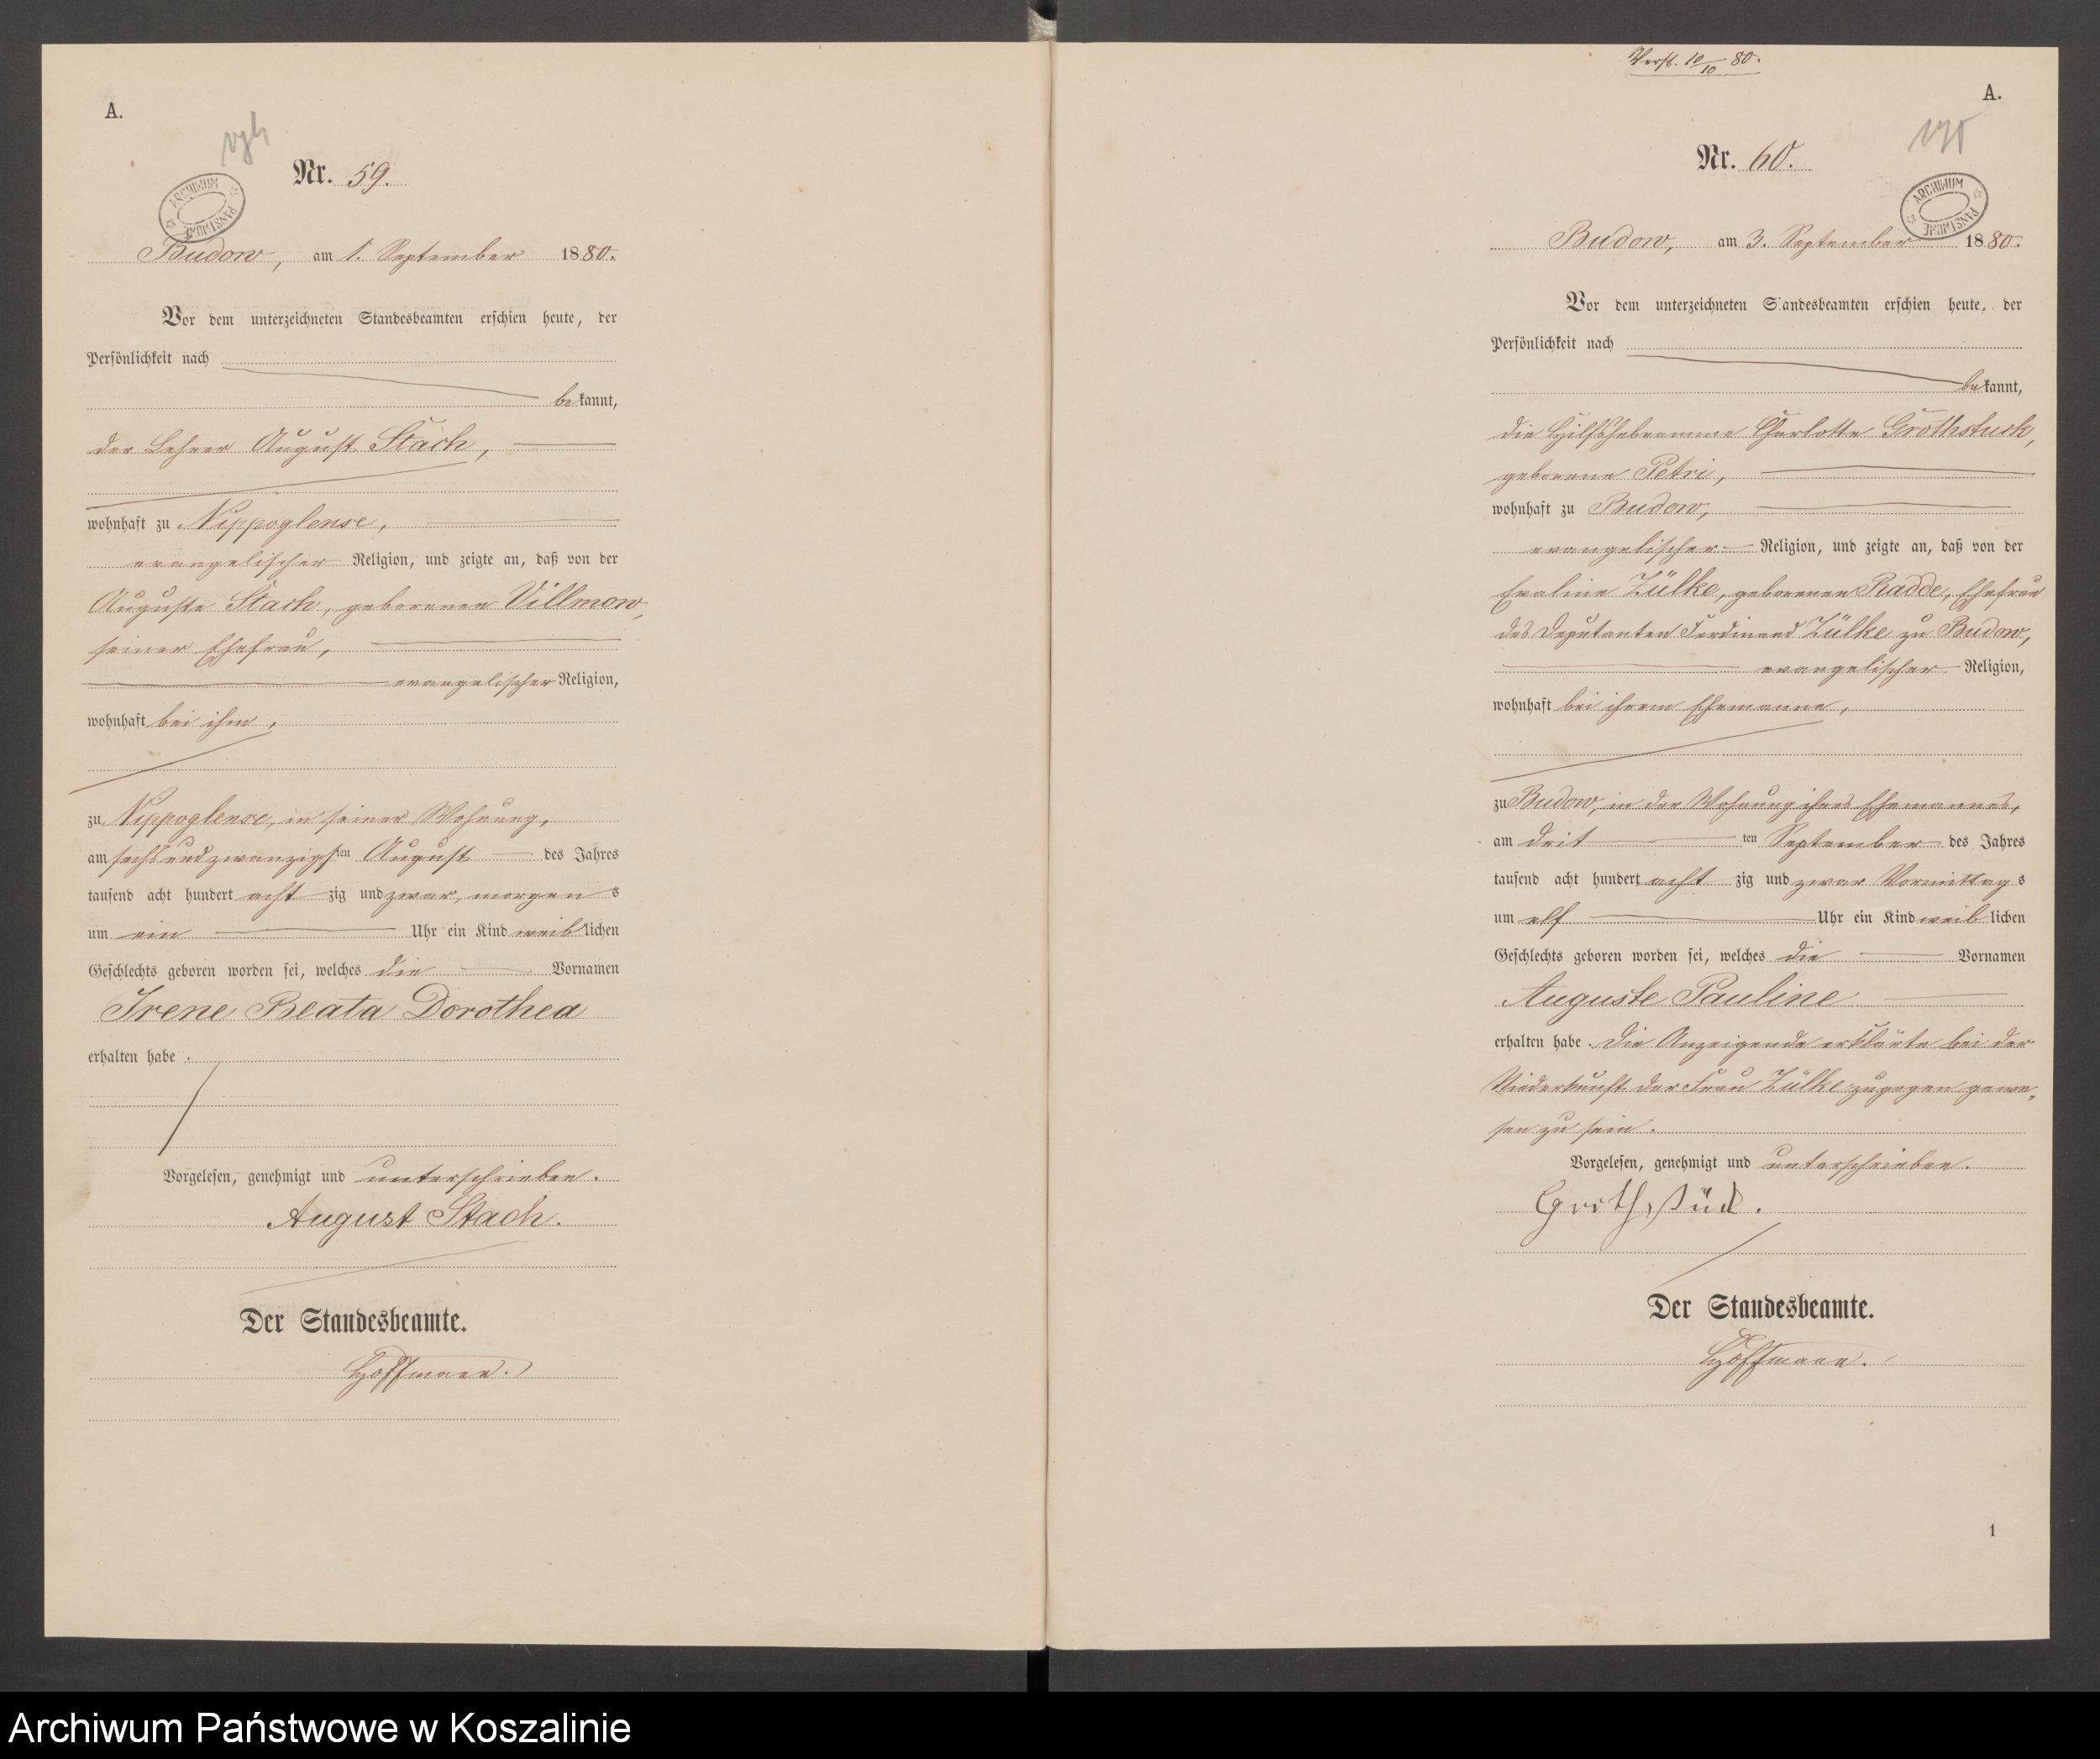 A.
Nr. 59.
ARCHIWUM PAŃSTWOWE
Budow, am 1. September 1880.
Vor dem unterzeichneten Standesbeamten erschien heute, der
Persönlichkeit nach
bekannt,
der Lehrer August Stach,
wohnhaft zu Nippoglense,
evangelischer Religion, und zeigte an, daß von der
Auguste Stach, geborenen Villmow,
seiner Ehefrau,
evangelischer Religion,
wohnhaft bei ihm,
zu Nippoglense, in seiner Wohnung,
am sechsundzwanzigsten August des Jahres
tausend acht hundert achtzig und zwar, morgens
um ein Uhr ein Kind weiblichen
Geschlechts geboren worden sei, welches die Vornamen
Irene Beata Dorothea
erhalten habe.
Vorgelesen, genehmigt und unterschrieben.
August Stach.
Der Standesbeamte.
Hoffmann.
Verst. 10/10 80.
A.
Nr. 60.
ARCHIWUM PAŃSTWOWE
Budow, am 3. September 1880.
Vor dem unterzeichneten Standesbeamten erschien heute, der
Persönlichkeit nach
bekannt,
die Hilfshebeamme Charlotte Grothstuck,
geborene Petri,
wohnhaft zu Budow,
evangelischer Religion, und zeigte an, daß von der
Eveline Zülke, geborenen Radde, Ehefrau
des Deputanten Ferdinand Zülke zu Budow,
evangelischer Religion,
wohnhaft bei ihrem Ehemanne,
zu Budow, in der Wohnung ihres Ehemannes,
am dritten September des Jahres
tausend acht hundert achtzig und zwar Vormittags
um elf Uhr ein Kind weiblichen
Geschlechts geboren worden sei, welches die Vornamen
Auguste Pauline
erhalten habe. Die Anzeigende erklärte bei der
Niederkunft der Frau Zülke zugegen gewe-
sen zu sein.
Vorgelesen, genehmigt und unterschrieben.
Grothstück.
Der Standesbeamte.
Hoffmann.
1
Archiwum Państwowe w Koszalinie